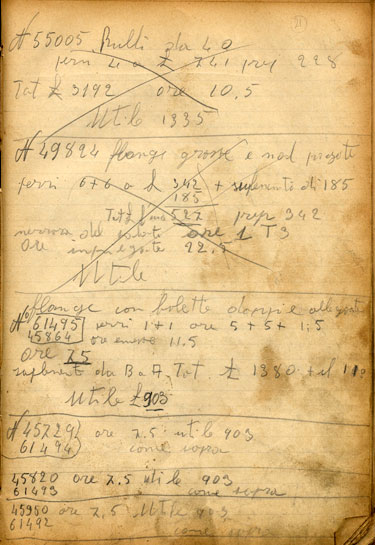 N 55005 Rulli da 40
ferri 4 a £ 741 prep 228
Tot £ 3192 ore 10,5
Utile 1335
N 49824 flange grosse e nod
ferri 6+6 a £ 342 + suplemento di 185
185
Tot £ 527 prep 342
del ore 1 T3
Ore impiegate 22,5
Utile
flange con bolette doppie
N 61495 ferri 1+1 ore 5+5+1,5
45864 ore 11.5
ore 7,5
suplemento da B a A, Tot £ 1380
Utile £ 903
N 45729 ore 7.5 utile 903
61494 come sopra
45820 ore 7.5 utile 903
61493 come sopra
45980 ore 7,5 Utile 903
61492 come sopra